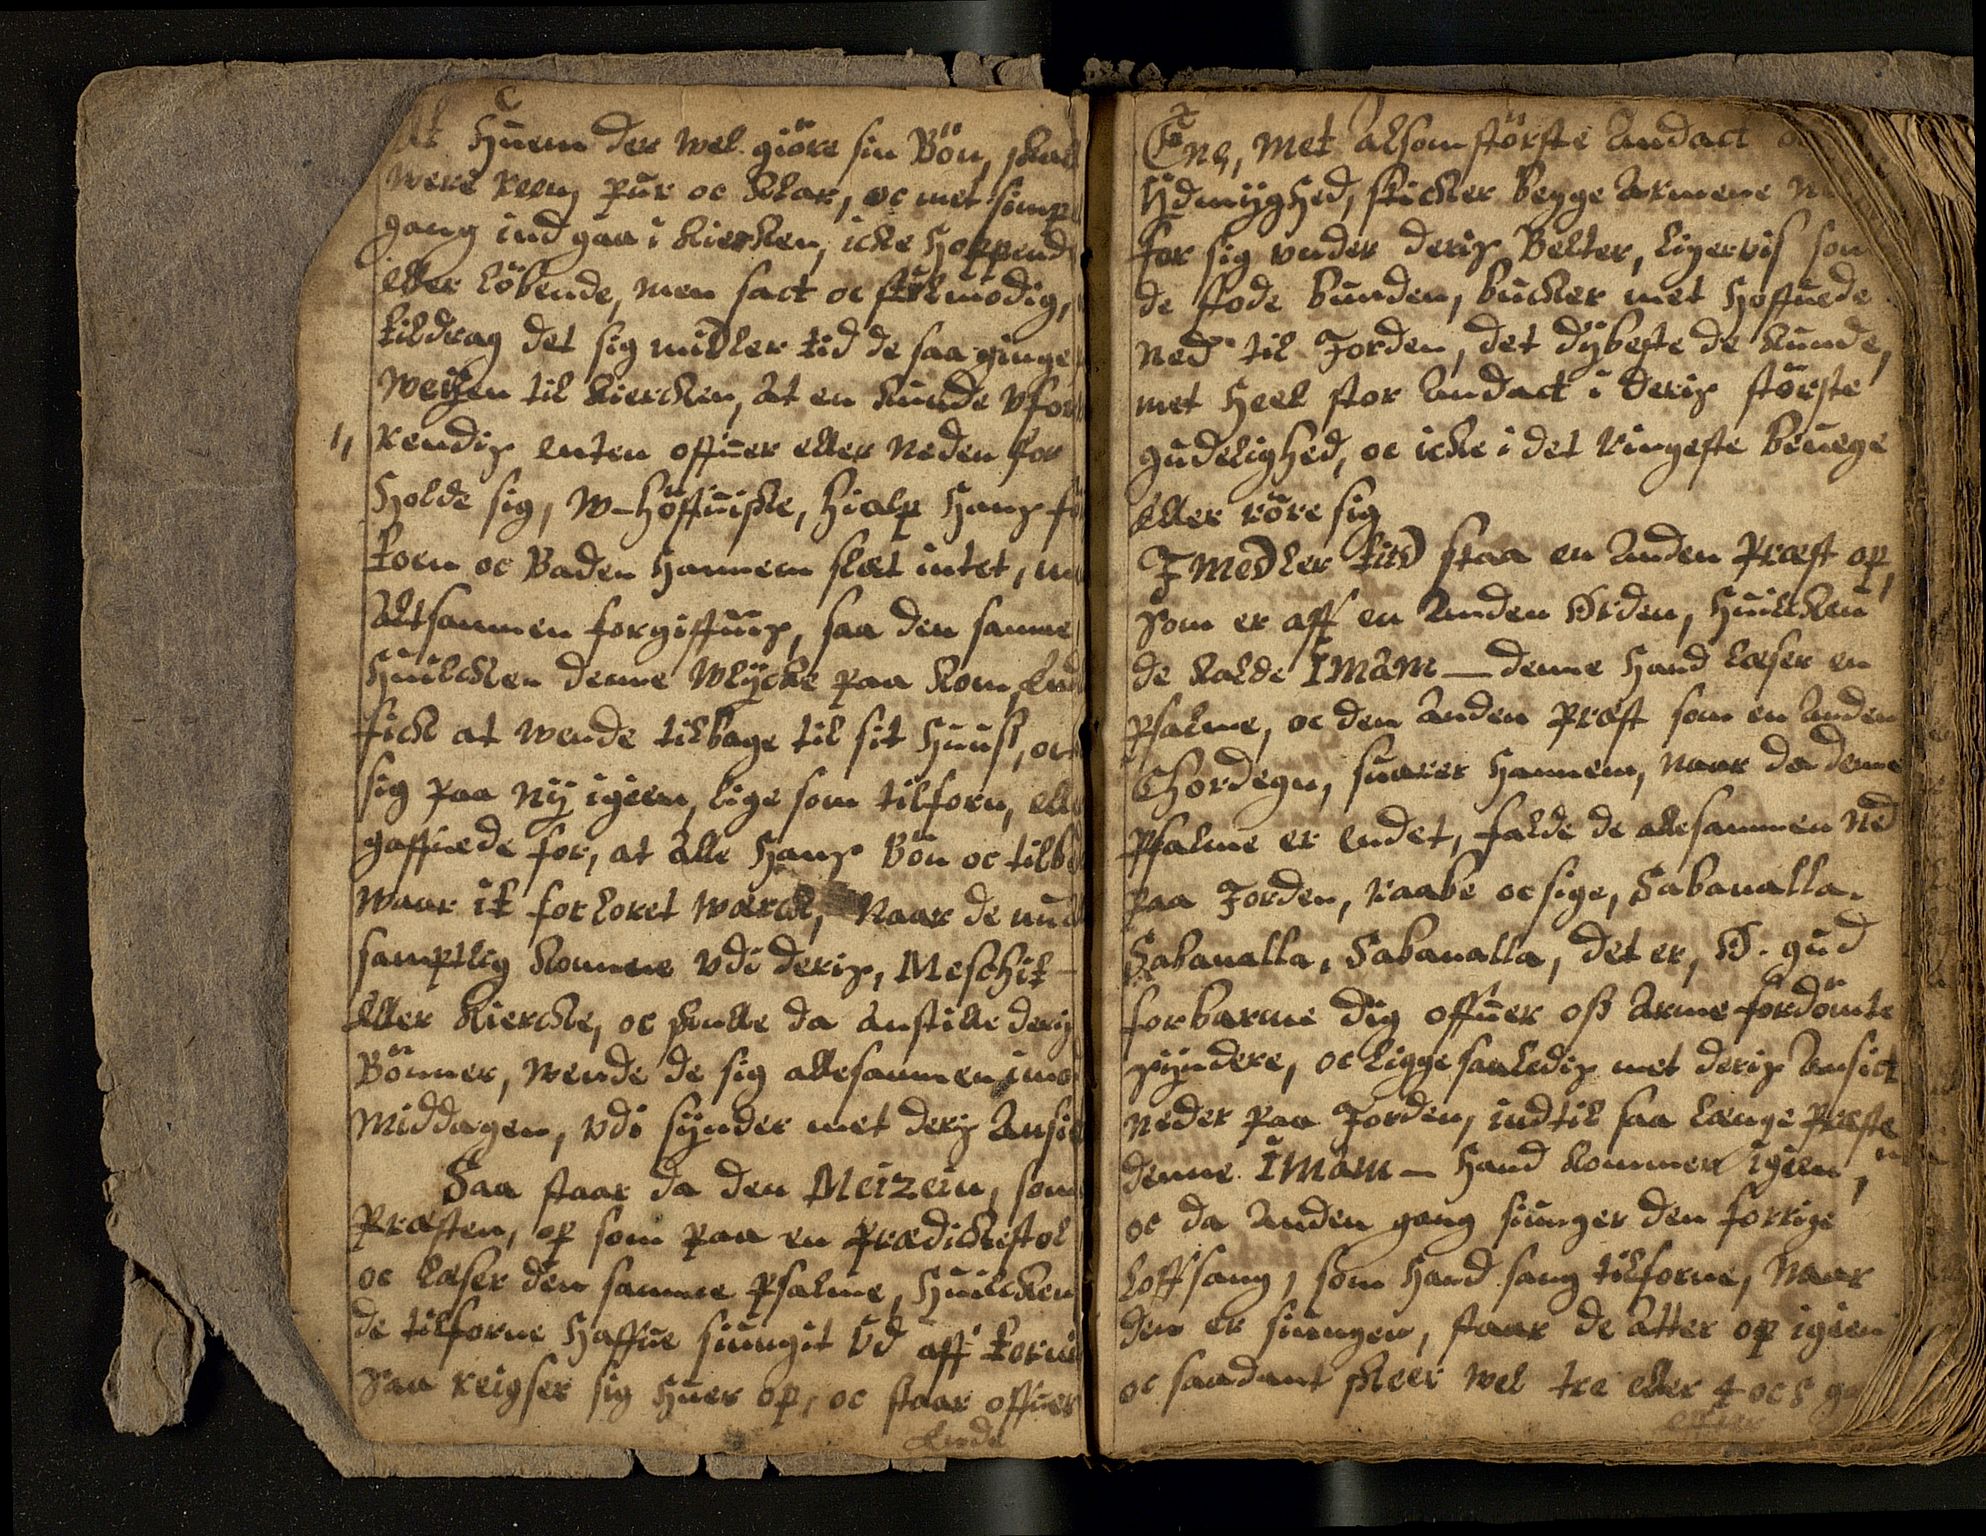 At Huem der wel giöre sin Bön, skal
were reen, pur oc klar, oc met simpel
gang ind gaa i kiercken, icke Hoppend
eller löbende, men sact oc stilmodig,
tildrag det sig midler tid de saa ginge
Weÿen til kiercken, at en kunde vfor
rendis enten offuer eller neden for
Holde sig, W-höffuiske, Hialp Hans
torn oc Baden Hannem slet intet,
altsammen forgiffuis, saa den samme
Huilcken denne Wlÿcke paa kom,
fick at wende tilbage til sit Huus,
sig paa nÿ igien, lige som tilforn,
gaffuede for, at alle Hans Bön oc
waar it forloret werck, Naar de nu
samptlig komme vdi deris, Meschit
eller kiercke, oc skulle da anstille deris
Bönner, wende de sig allesammen imod
middagen, vdi sÿnder met deris Ansic
Saa staar da den Meizein, som
Præsten, op som paa en prædickestol
oc læser den samme psalme, Huilcken
de tilforne Haffue siungit vd aff torni
saa reigser sig Huer op, oc staar offuer
Ende
Ende, met alsomstörste Andact oc
ÿdmÿgHed, sticker begge Armene
for sig vnder deris Belter, ligervis som
de stode bunden, bucker met Hoffuede
ned til Jorden, det dÿbeste de kunde,
met Heel stor Andact i deris störste
gudeligHed, oc icke i det ringeste beuege
eller röre sig
Imedler tiid staa en Anden Præst op,
som er aff en Anden Orden, Huilcken
de kalde IMAM — denne Hand læser en
psalme, oc den Anden præst som en Anden
Chordegn, suarer Hannem, naar da denne
psalme er endet, falde de allesammen ned
paa Jorden, raabe oc sige, Sabanalla.
Sabanalla, Sabanalla, det er, O. gud
forbarme dig offuer oss Arme fordömte
sÿndere, oc ligge saaledis met deris Ansict
neder paa Jorden, indtil saa længe Præste
denne IMAM — Hand kommer igien,
oc da Anden gang siunger den forrige
loffsang, som Hand sang tilforne, Naar
den er siungen, staar de Atter op igien
oc saadant skeer wel tre eller 4 oc 5